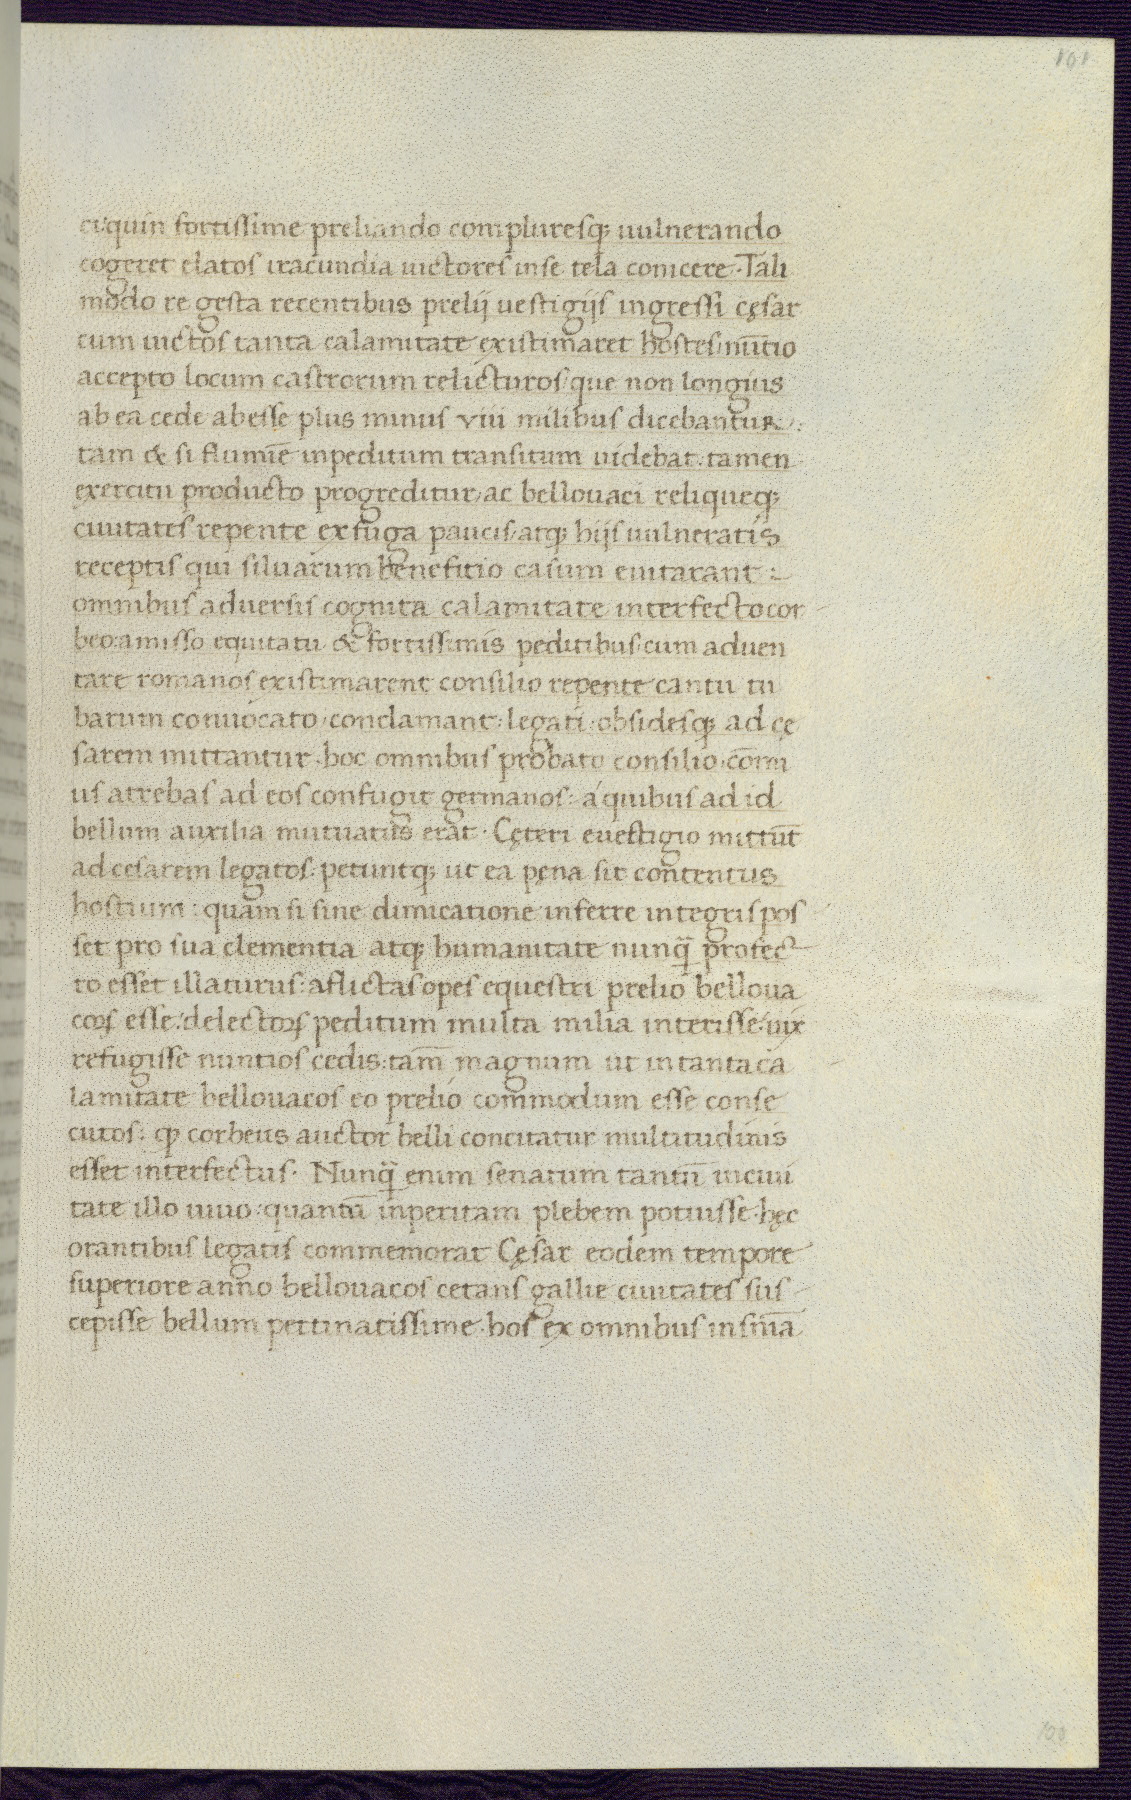 101
ci quin fortissime preliando compluresq; uulnerando
cogeret elatos iracundia uictores in se tela conicere · Tali
modo re gesta recentibus prelij uestigijs ingressi cęsar
cum uictos tanta calamitate existimaret hostes nūtio
accepto locum castrorum relicturos / que non longius
ab ea cede abesse plus minus viii milibus dicebantur :
tam & si flumiē inpeditum transitum uidebat : tamen
exercitu producto progreditur / ac bellouaci reliqueq;
ciuitates repente ex fuga paucis / atq; hijs uulneratis
receptis qui siluarum benefitio casum euitarant :
omnibus aduersis cognita calamitate interfecto cor
beo : amisso equitatu & fortissimis peditibus / cum aduen
tare romanos existimarent consilio repente cantu tu
barum conuocato / conclamant : legati / obsidesq; ad cę
sarem mittantur · hoc omnibus probato consilio · cōmi
us atrebas ad eos confugit germanos : a quibus ad id
bellum auxilia mutuatus erat · Cęteri euestigio mittūt
ad cesarem legatos : petuntq; ut ea pęna sit contentus
hostium : quam si sine dimicatione inferre integris pos
set pro sua clementia atq; humanitate nunq̄ profec
to esset illaturus : aflictas opes equestri prelio belloua
coꝝ esse : delectoꝝ peditum multa milia interisse : uix
refugisse nuntios cedis : tam̄ magnum ut in tanta ca
lamitate bellouacos eo prelio commodum esse conse
cutos : ꝙ corbeus auctor belli concitatur multitudinis
esset interfectus · Nunq̄ enim senatum tantū in ciui
tate illo uiuo : quantū inperitam plebem potuisse · hęc
orantibus legatis commemorat Cęsar eodem tempore
superiore anno bellouacos cetans gallie ciuitates sus
cepisse bellum pertinatissime · hos ex omnibus in sn̄ia